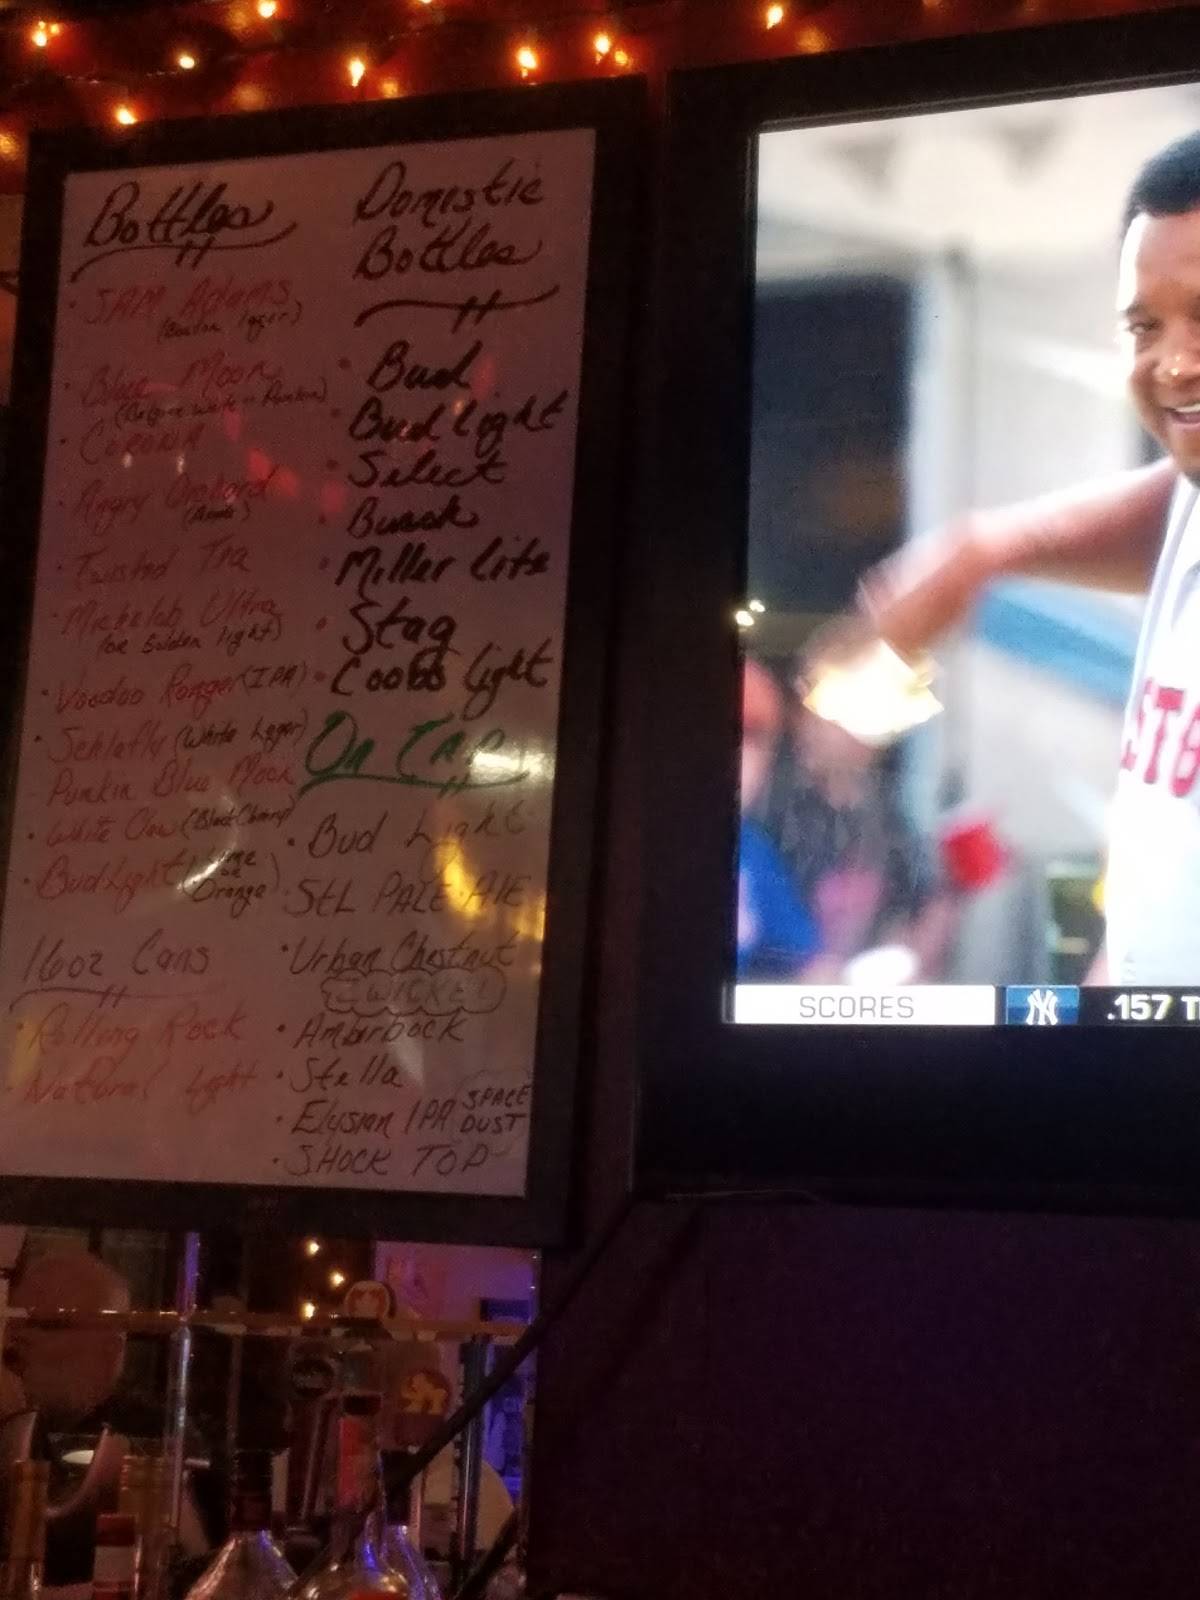 Bottles
SAM Adams
(Boston lager)
Blue Moon
(Belgian White - Pumkin)
CORONA
Angry Orchard
Twisted Tea
Michelob Ultra
(or Golden light)
Voodoo Ranger (IPA)
Schlafly (White Lager)
Punkin Blue Moon
White Claw (Black Cherry)
Bud Light (Lime or Orange)
16oz Cans
Rolling Rock
Natural Light
Domestic
Bottles
Bud
Bud Light
Select
Busch
Miller Lite
Stag
Coors Light
On TAP
Bud Light
StL PALE ALE
Urban Chestnut
ZWICKEL
Amberbock
Stella
Elysian IPA SPACE DUST
SHOCK TOP
SCORES
NY
.157